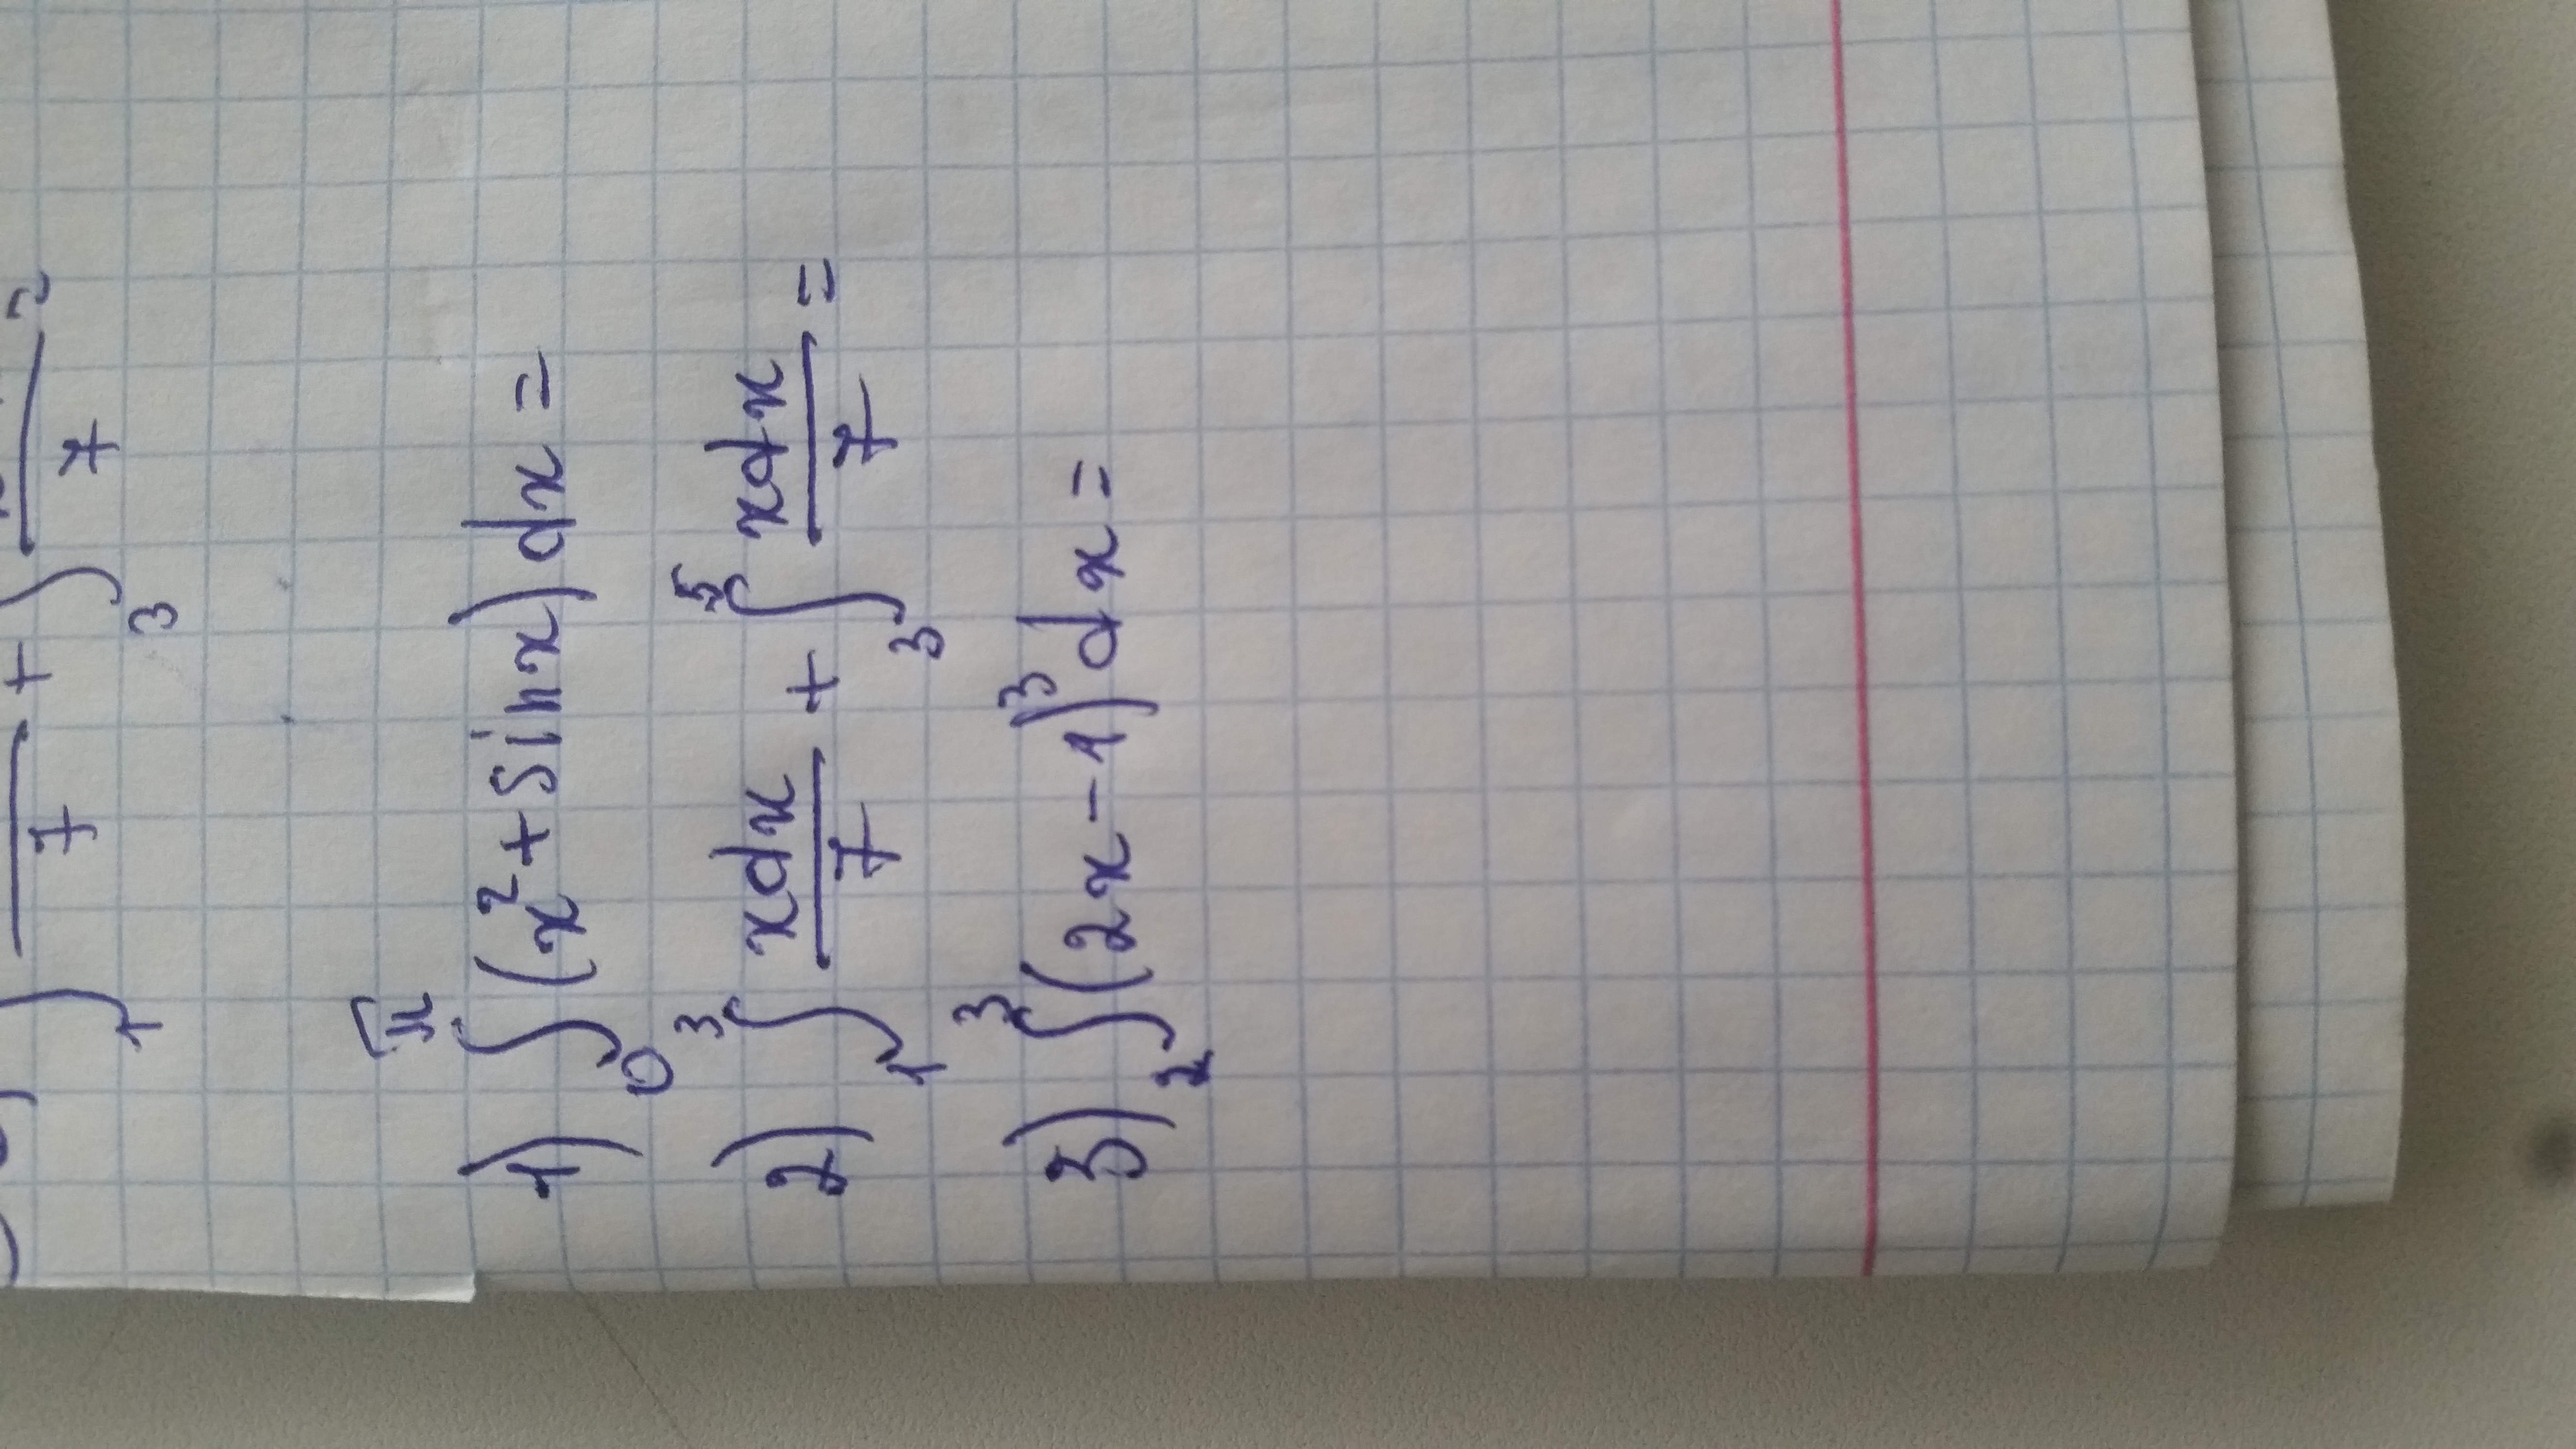 ∫₁ —/7 + ∫₃ —/7
1) ∫₀^π (x² + sin x) dx =
2) ∫₁³ xdx/7 + ∫₃⁵ xdx/7 =
3) ∫₂³ (2x - 1)³ dx =